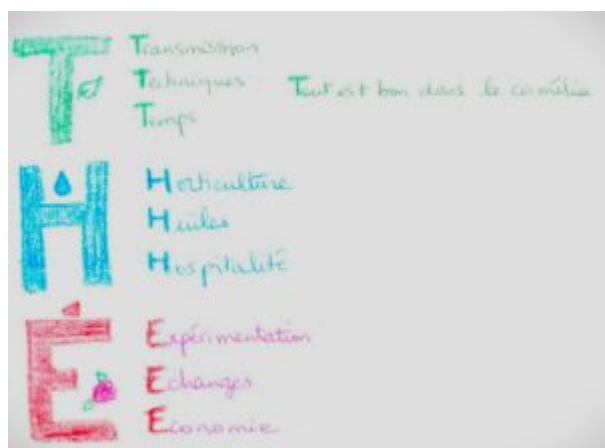 T
Transmission
Techniques
Temps
Tout est bon dans le camélia
H
Horticulture
Huiles
Hospitalité
É
Expérimentation
Echanges
Economie